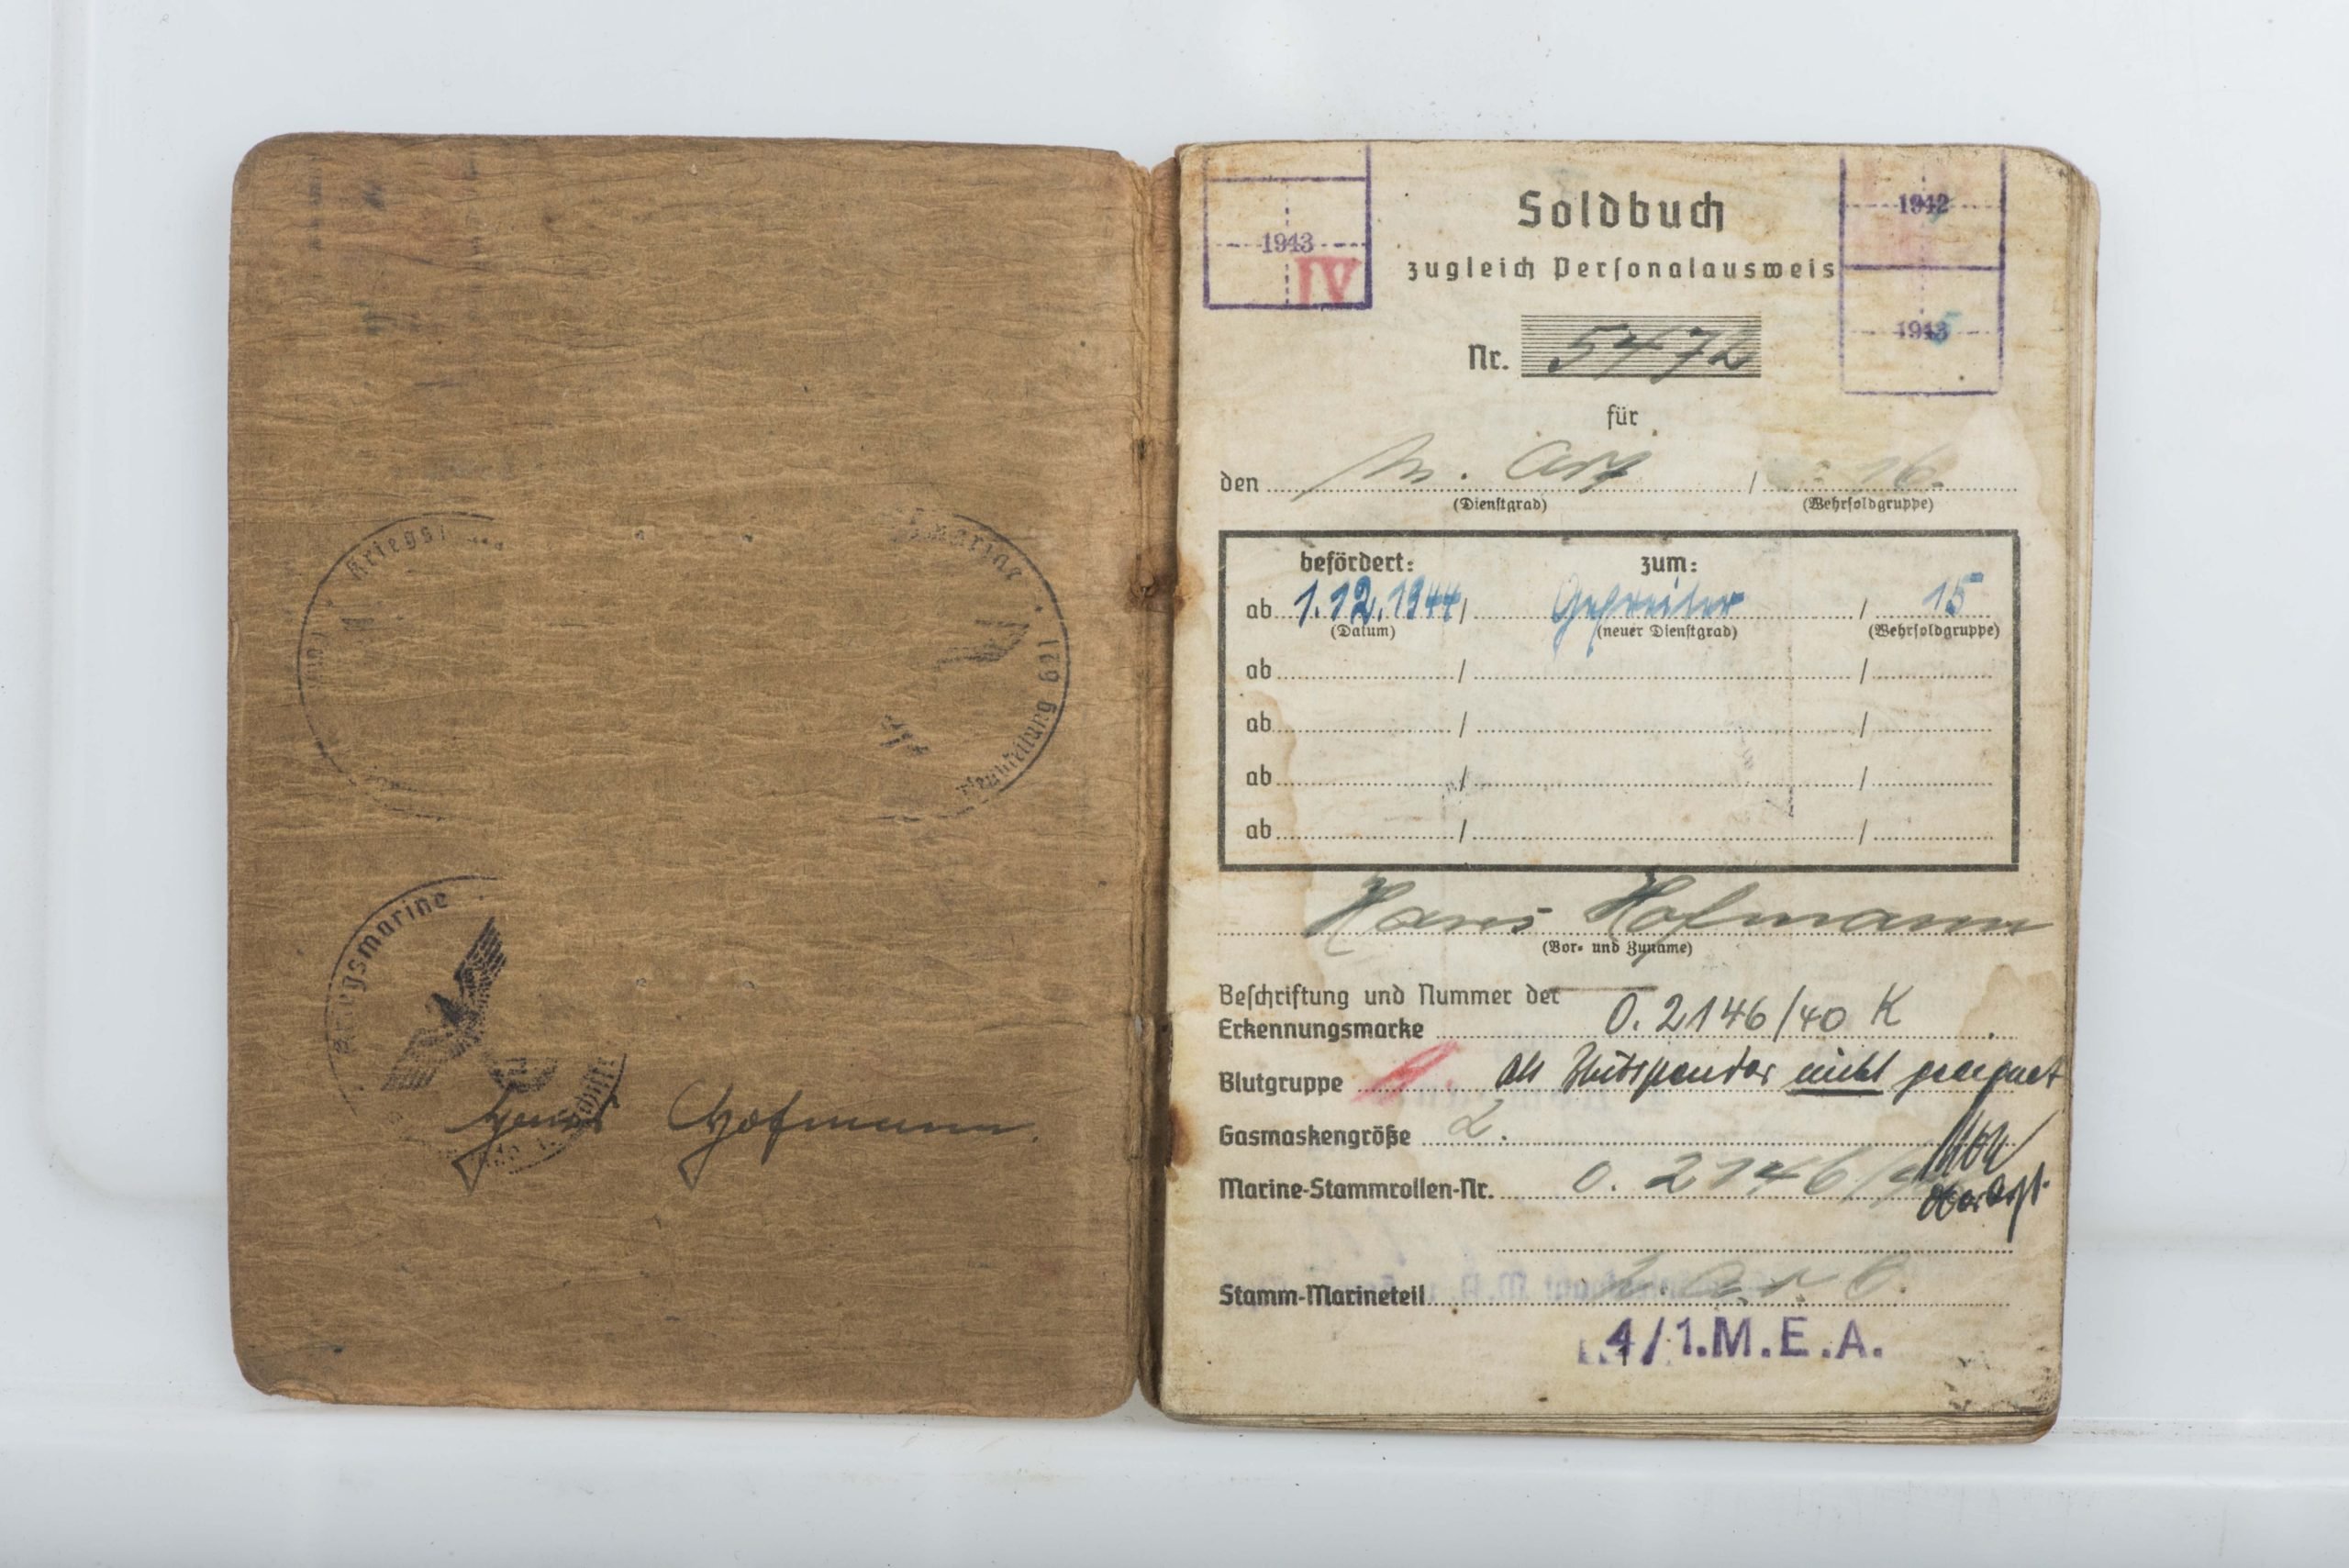 Kriegsmarine
Hans Hofmann.
1943
IV
1942
1943
Soldbuch
zugleich Personalausweis
Nr. 5472
für
den M. Art / 16.
(Dienstgrad) (Wehrsoldgruppe)
befördert: zum:
ab 1.12.1944 / Gefreiter / 15
(Datum) (neuer Dienstgrad) (Wehrsoldgruppe)
ab / /
ab / /
ab / /
ab / /
Hans Hofmann
(Vor- und Zuname)
Beschriftung und Nummer der
Erkennungsmarke O. 2146/40 K
Blutgruppe A. als Blutspender nicht geeignet
Gasmaskengröße 2.
Marine-Stammrollen-Nr. O. 2146/
Stamm-Marineteil
4/1.M.E.A.